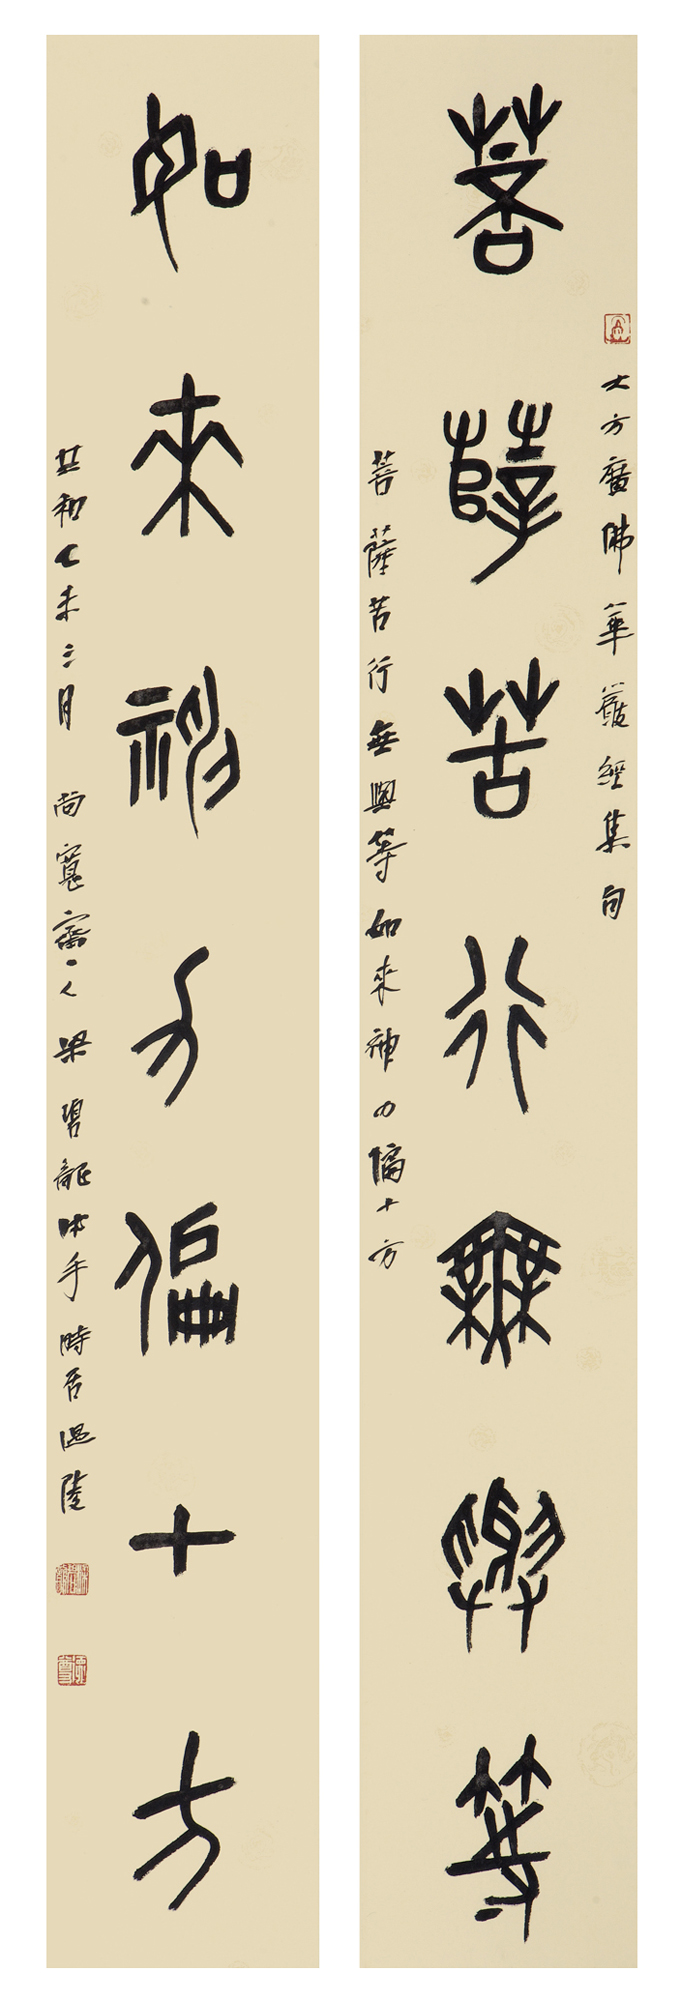 大方廣佛華嚴經集句
菩薩苦行無與等
菩薩苦行無與等如來神力偏十方
如來神力偏十方
共和乙未三月尚寬齋主人梁碧龍沐手時居溫陵